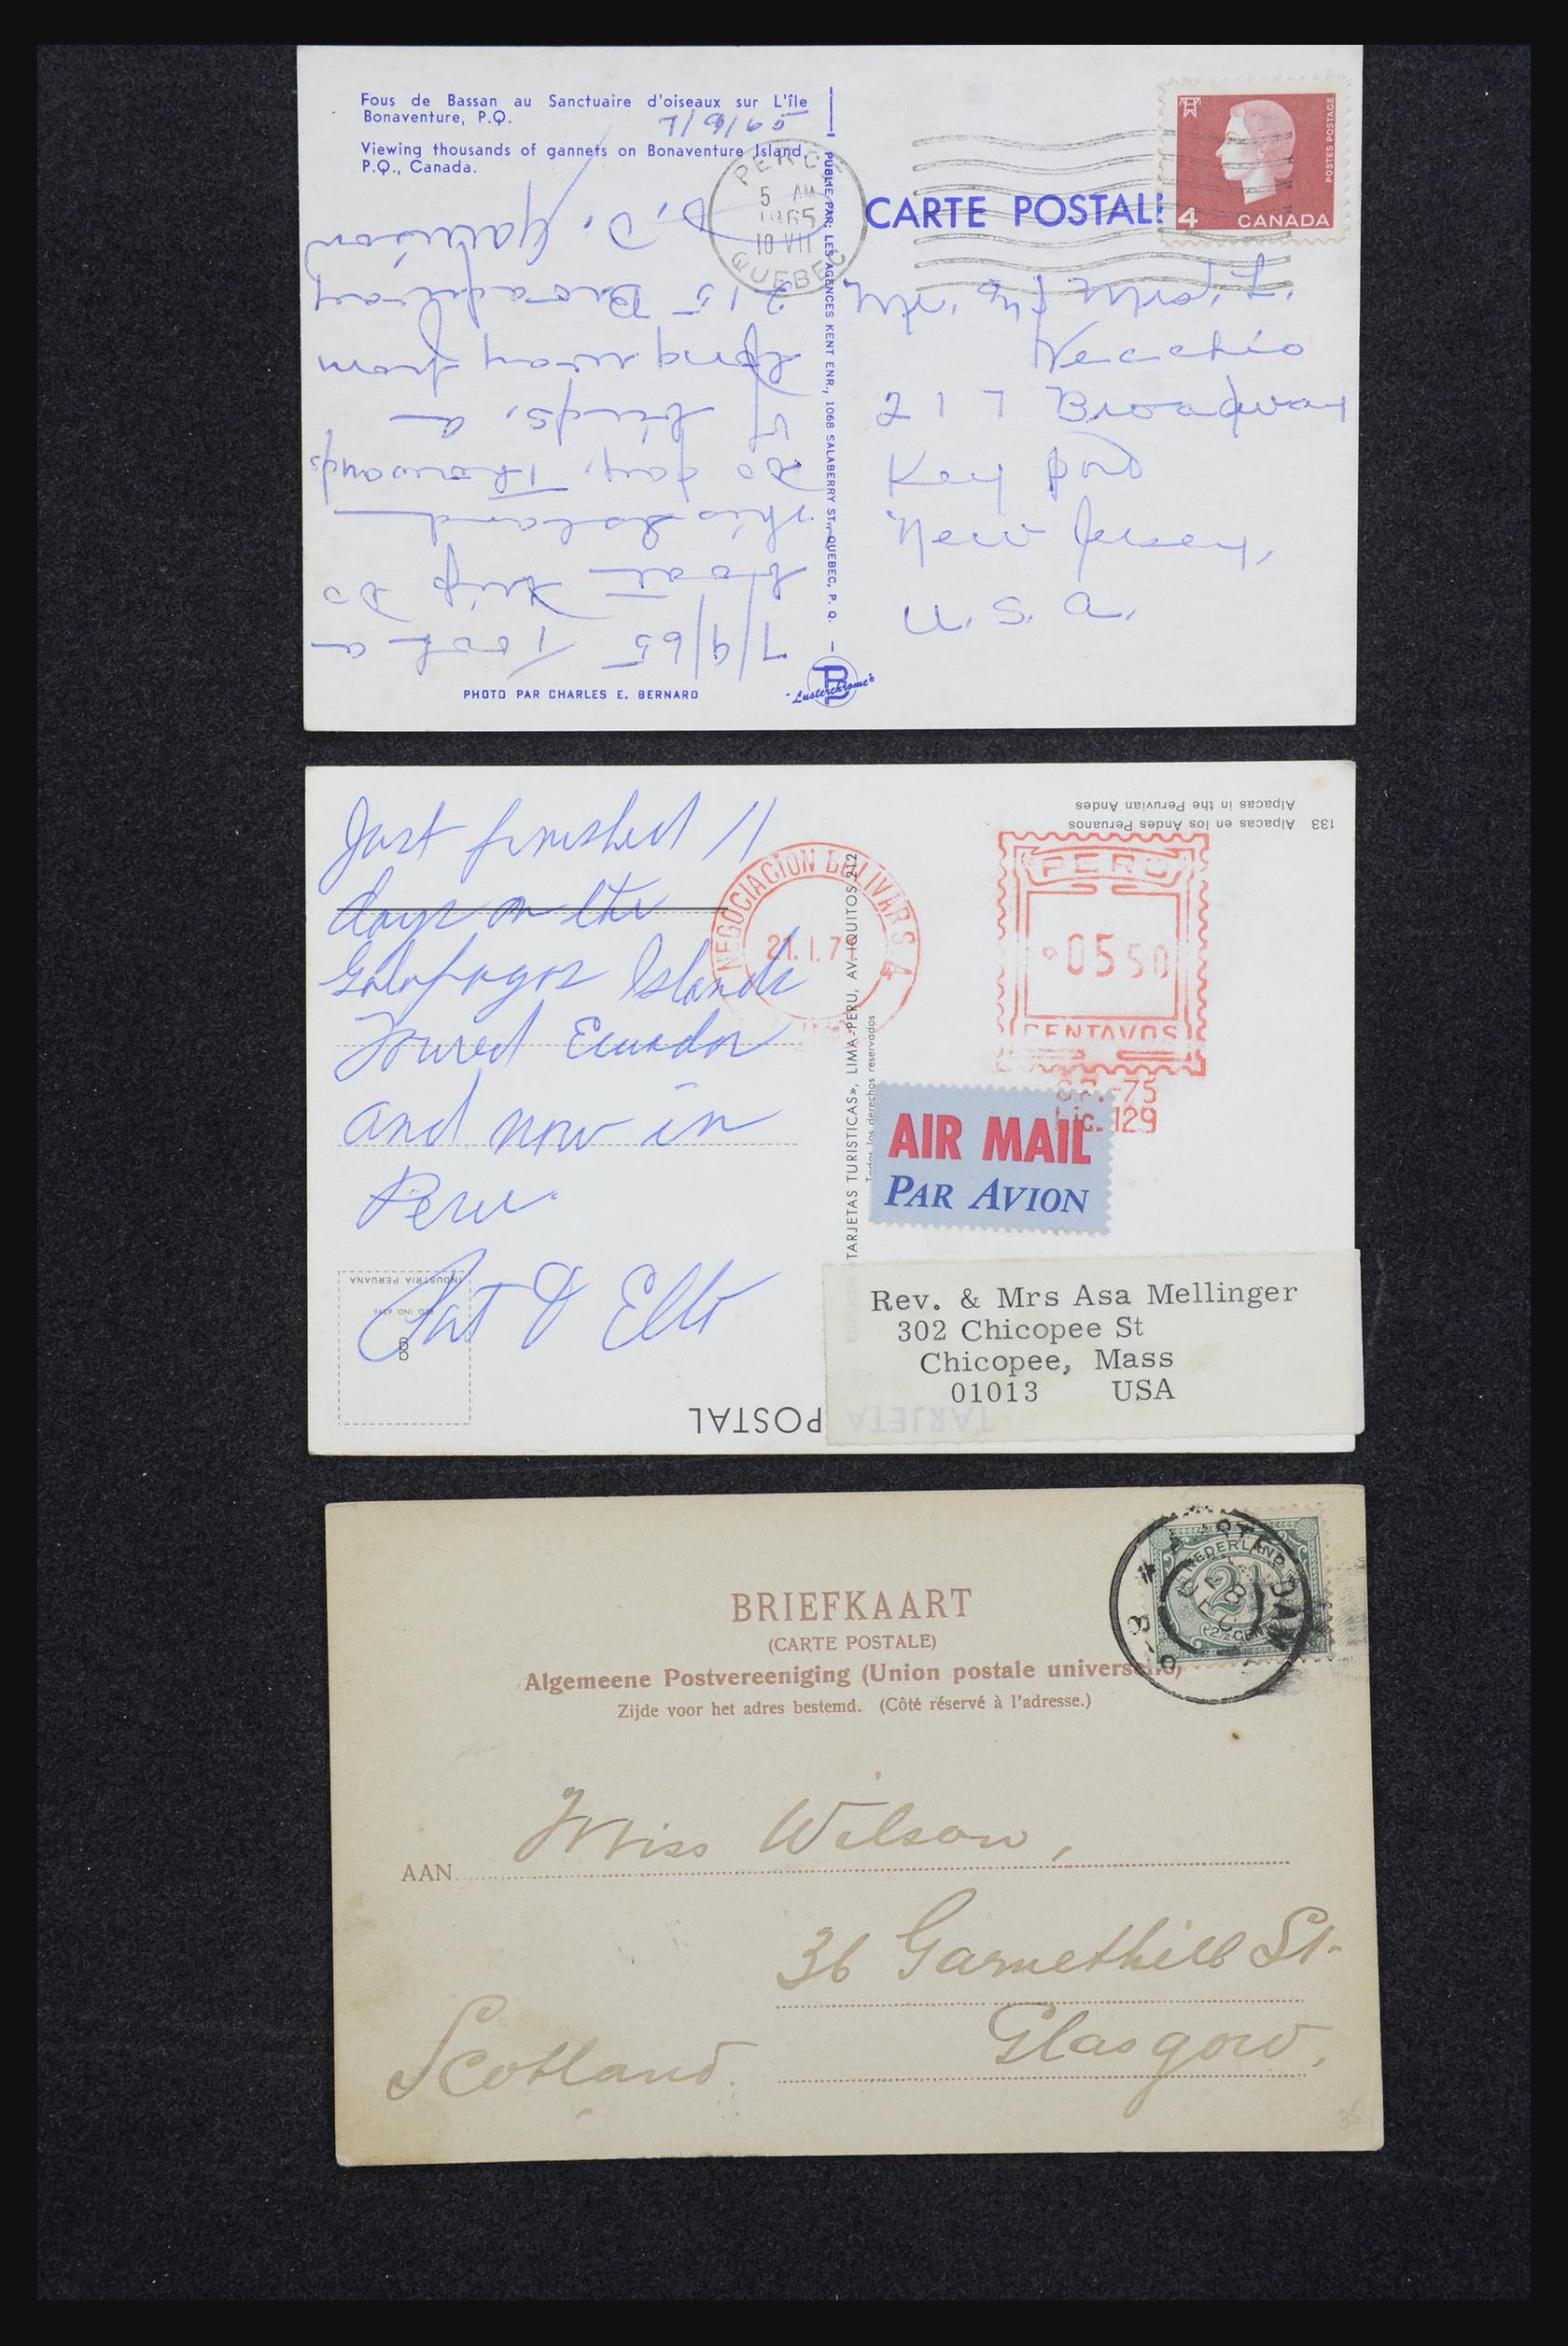 Fous de Bassan au Sanctuaire d'oiseaux sur L'île
Bonaventure, P.Q.
7/9/65
Viewing thousands of gannets on Bonaventure Island,
P.Q., Canada.
7/9/65 Took a
boat trip to
this Island
to day. Thousands
of birds, a
long way from
215 Broadway
D. D.
PUBLIE PAR: LES AGENCES KENT ENR., 1068 SALABERRY ST., QUEBEC, P. Q.
PHOTO PAR CHARLES E. BERNARD
Lusterchrome's
PERCE
5 AM
1965
10 VII
QUEBEC
CARTE POSTAL
4 CANADA
POSTES POSTAGE
Vecchio
217 Broadway
Key port
New Jersey,
U.S.A.
133 Alpacas en los Andes Peruanos
Alpacas in the Peruvian Andes
Just finished 11
days on the
Galapagos Islands
Toured Ecuador
and now in
Peru.
INDUSTRIA PERUANA
REG. IND. 6396
NEGOCIACION BOLIVAR S A
21.I.7
TARJETAS TURISTICAS», LIMA-PERU, AV. IQUITOS 212
Todos los derechos reservados
PERU
05 50
CENTAVOS
-75
Lic. 129
AIR MAIL
PAR AVION
Rev. & Mrs Asa Mellinger
302 Chicopee St
Chicopee, Mass
01013 USA
TARJETA POSTAL
BRIEFKAART
(CARTE POSTALE)
Algemeene Postvereeniging (Union postale universelle)
Zijde voor het adres bestemd. (Côté réservé à l'adresse.)
NEDERLAND
2½
(2½ CENT)
AAN Miss Wilson,
36 Garnethill St.
Glasgow,
Scotland.
35